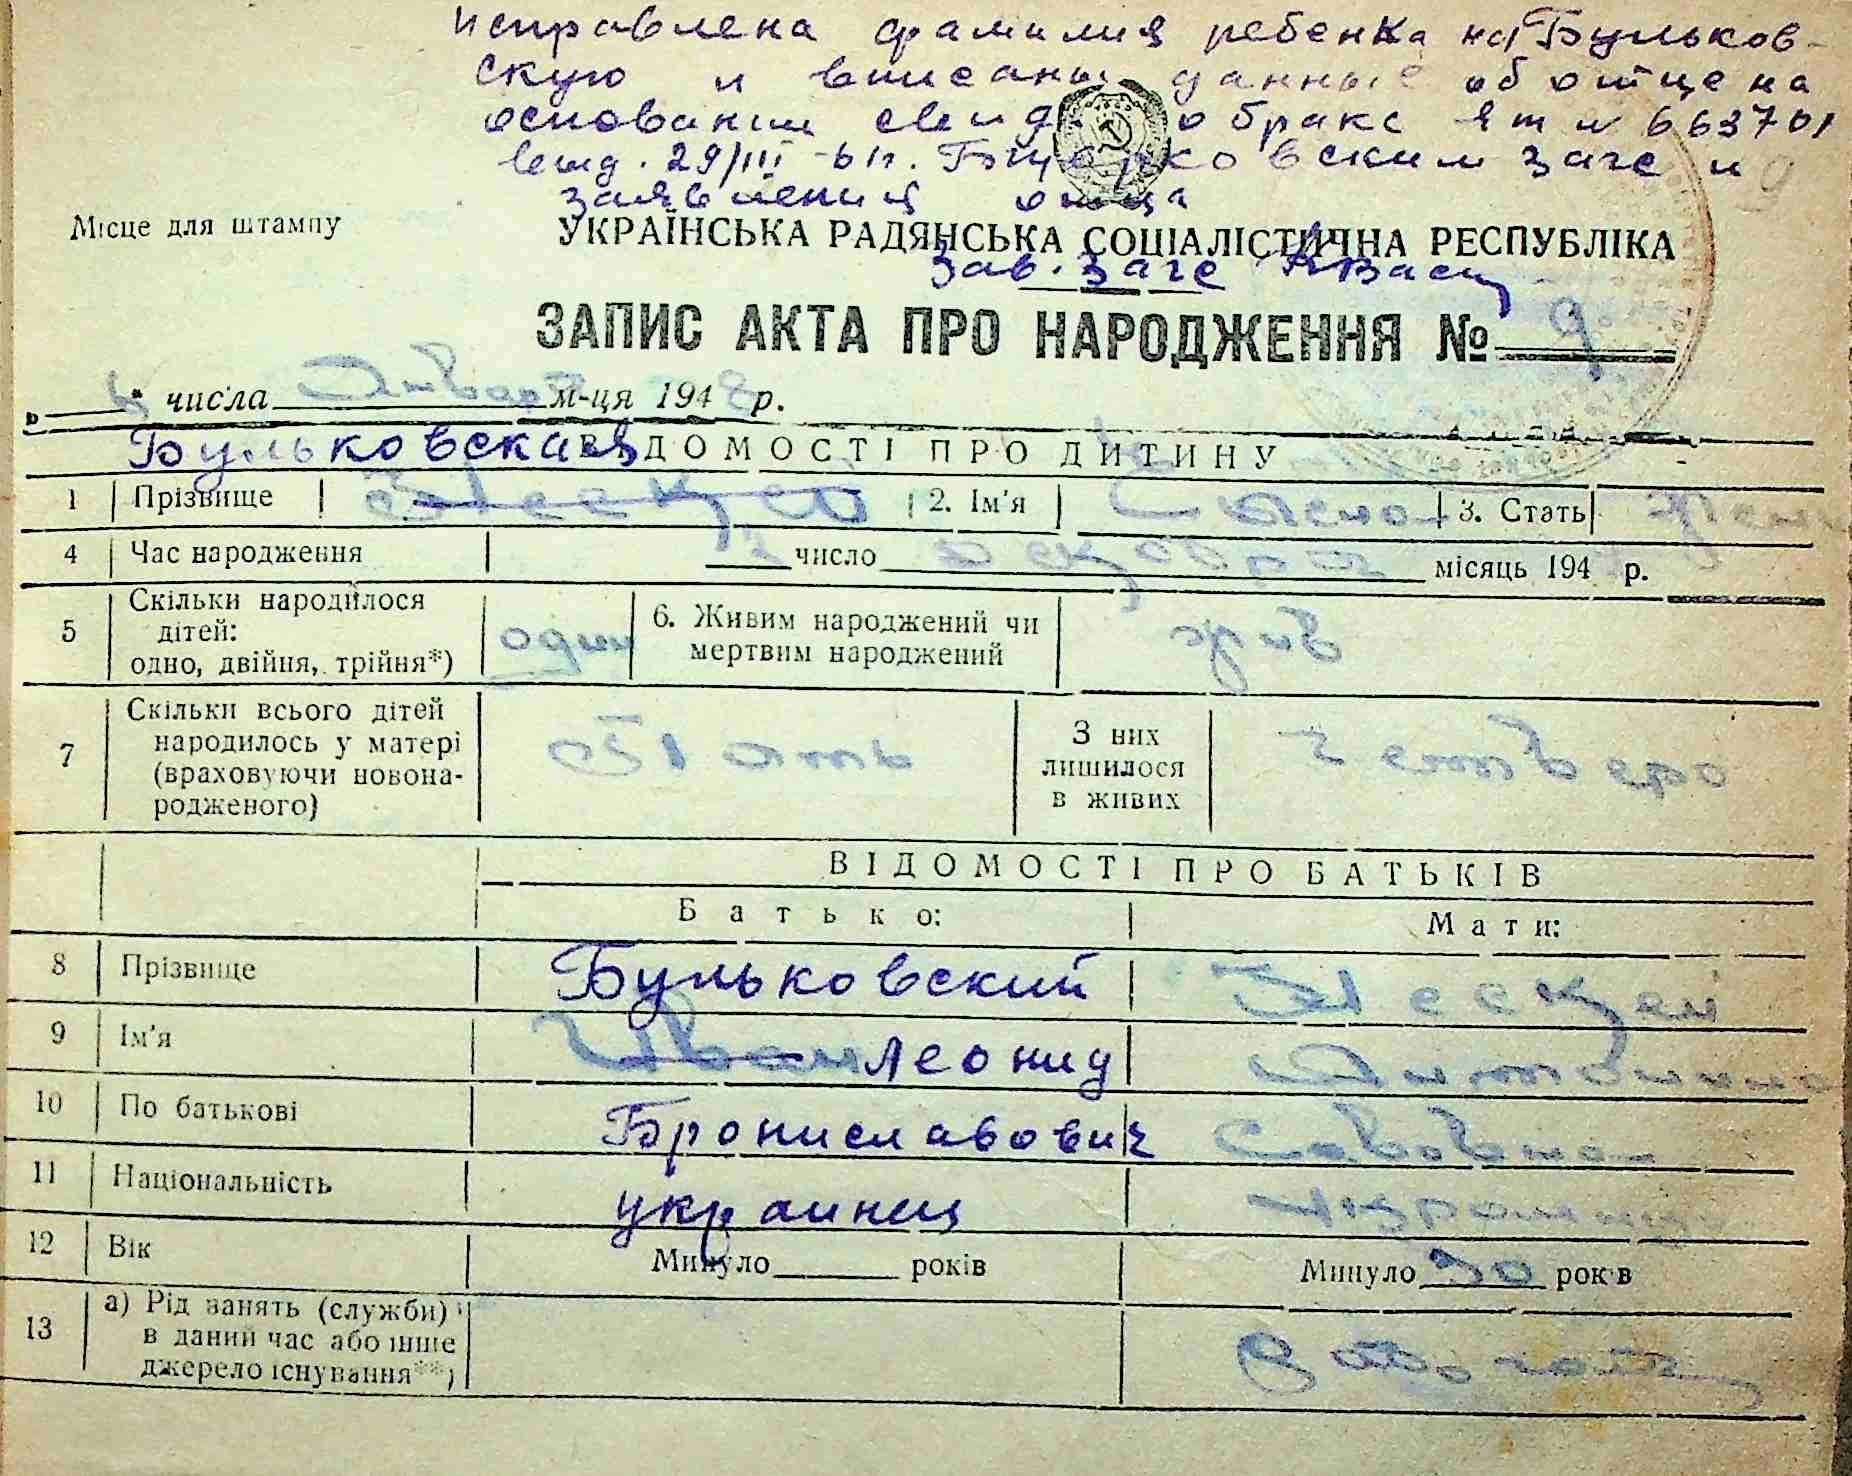 исправлена фамилия ребенка на Бульков-
скую и вписаны данные об отце на
основании свид. о браке ЯТ № 663701
выд. 29/III-61г. ским загс и
заявления отца
Місце для штампу
УКРАЇНСЬКА РАДЯНСЬКА СОЦІАЛІСТИЧНА РЕСПУБЛІКА
Зав. загс
ЗАПИС АКТА ПРО НАРОДЖЕННЯ № 9
числа Января м-ця 1948 р.
Бульковская
ВІДОМОСТІ ПРО ДИТИНУ
1 Прізвище 2. Ім'я 3. Стать жен
4 Час народження 2 число октября місяць 1947 р.
5 Скільки народилося дітей: одно, двійня, трійня*) один 6. Живим народжений чи мертвим народжений жив
7 Скільки всього дітей народилось у матері (враховуючи новона-родженого) Пять З них лишилося в живих Четверо
ВІДОМОСТІ ПРО БАТЬКІВ
Батько: Мати:
8 Прізвище Бульковский
9 Ім'я Иван Леонид Антонина
10 По батькові Брониславович Савовна
11 Національність украинец украинка
12 Вік Минуло років Минуло 30 років
13 а) Рід занять (служби) в даний час або інше джерело існування**)